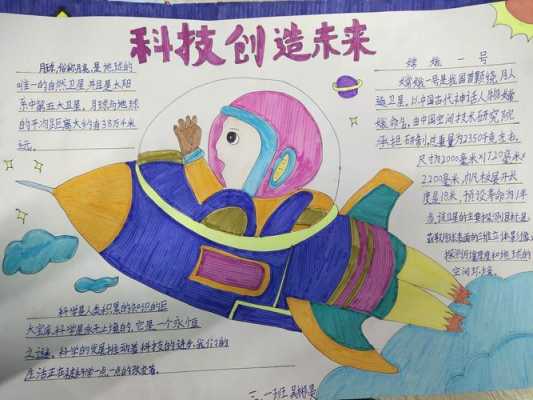 科技创造未来
月球，俗称月亮，是地球的
唯一的自然卫星并且是太阳
系中第五大卫星。月球与地球
的平均距离大约38万千米
远。
嫦娥一号
嫦娥一号是我国首颗绕月人
造卫星。以中国古代神话人物嫦
娥命名，由中国空间技术研究院
承担研制，总重量为2350千克左右，
尺寸为2000毫米×1720毫米×
2200毫米，帆板展开长
度是18米，预设寿命为1年
该卫星的主要探测目标是
获取月球表面的三维立体影像
探测月壤厚度和地球的
空间环境。
科学是人类积累的知识的巨
大宝库，科学是永无止境的，它是一个永恒
之谜。科学的发展推动着科技的进步，我们的
生活正在科学一点一点的改变着。
三、一班